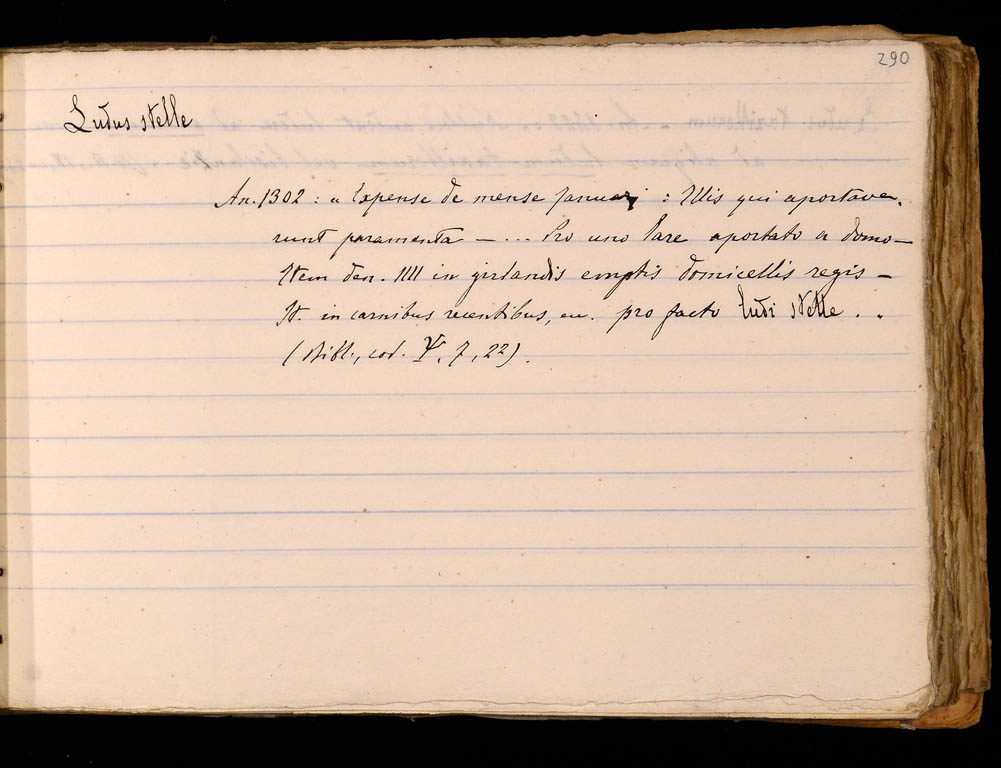 290
Ludus stelle
An. 1302 : « Expense de mense Januarj : Illis qui aportave.
runt paramenta — ... Pro uno lare aportato a domo —
Item den. IIII in girlandis emptis domicellis regis —
It. in carnibus recentibus, etc. pro facto ludi stelle . »
(Bibl., cod. Ψ, 7, 22).